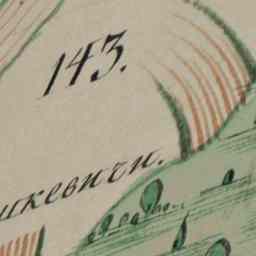 143.
шкевичи.